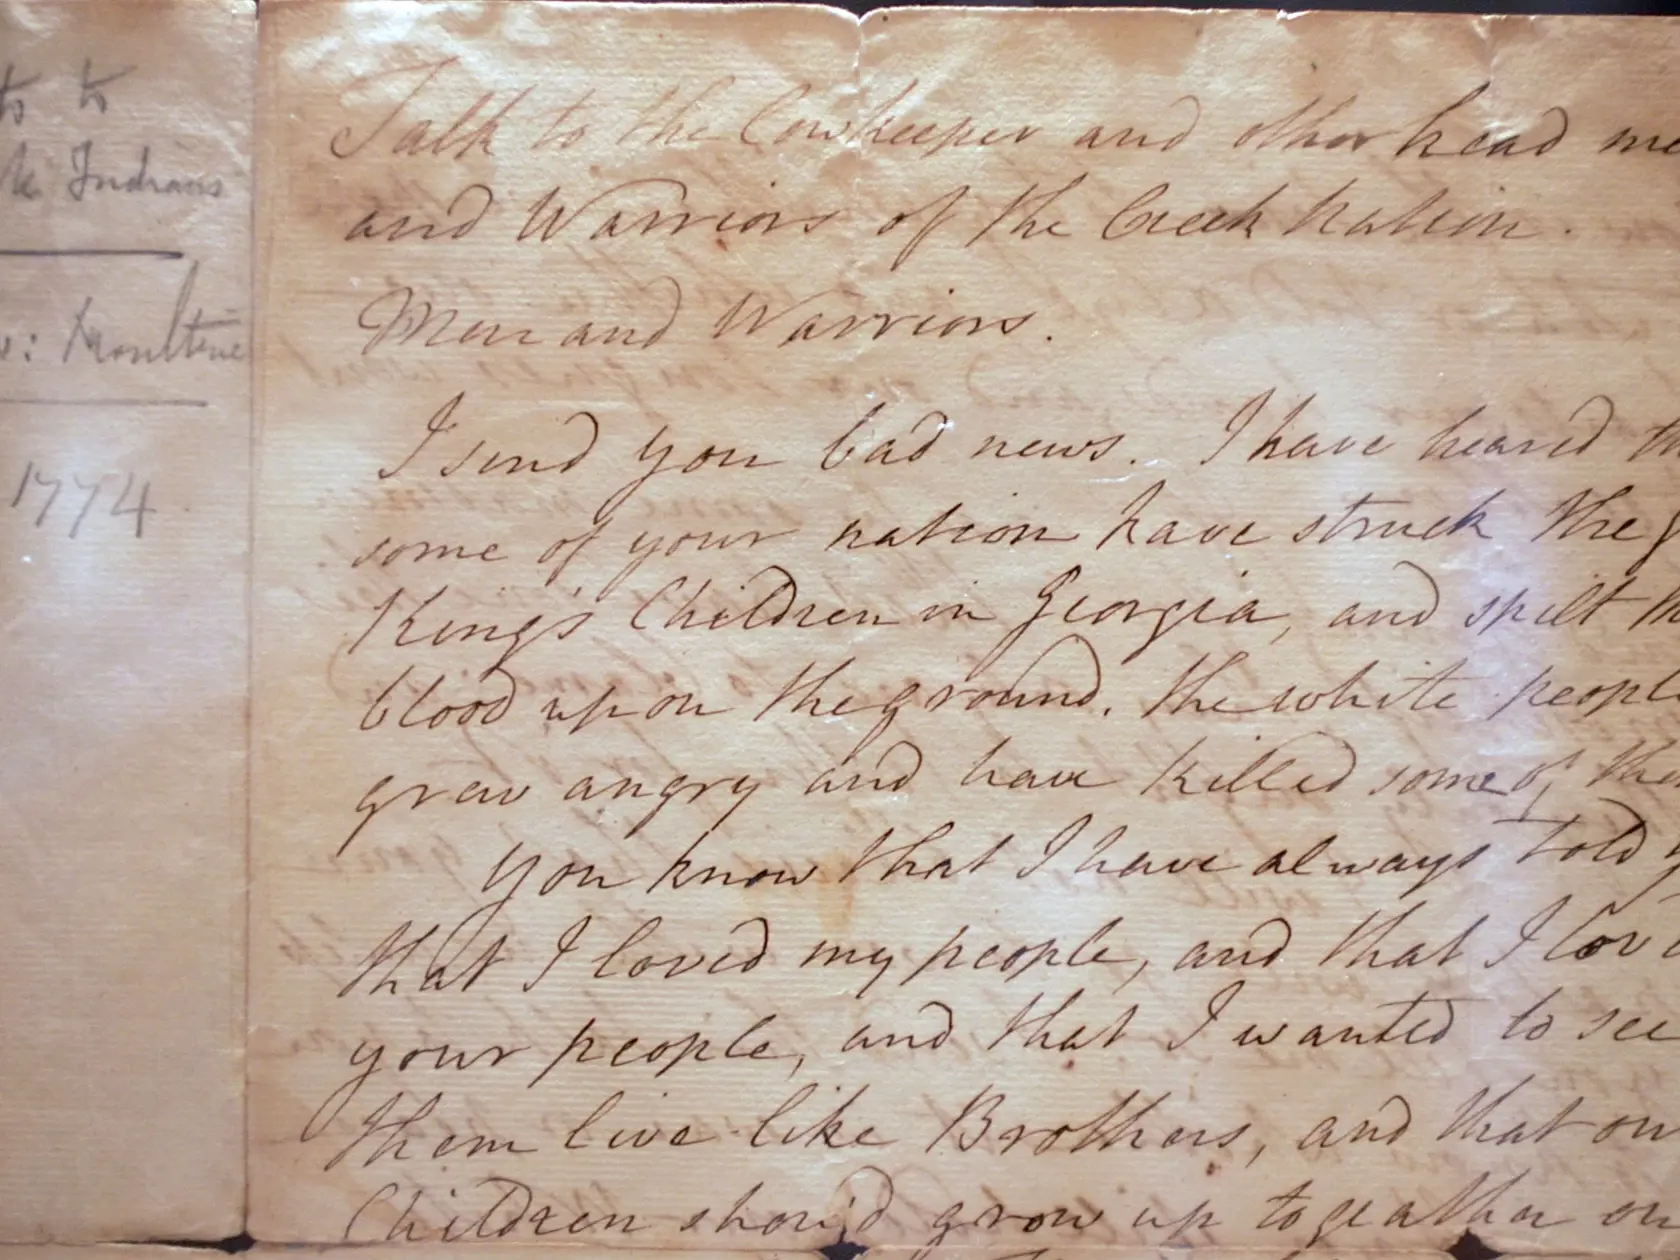 to to
Indians
: Moultrie
1774.
Talk to the Cowkeeper and other head me
and Warriors of the Creek Nation.
Men and Warriors.
I send you bad news. I have heard th
some of your nation have struck the g
King's Children in Georgia, and spilt th
blood upon the ground. the white peopl
grew angry and have killed some of the
You know that I have always told y
that I loved my people, and that I lov'd
your people, and that I wanted to see
them live like Brothers, and that ou
Children shou'd grow up togeather on